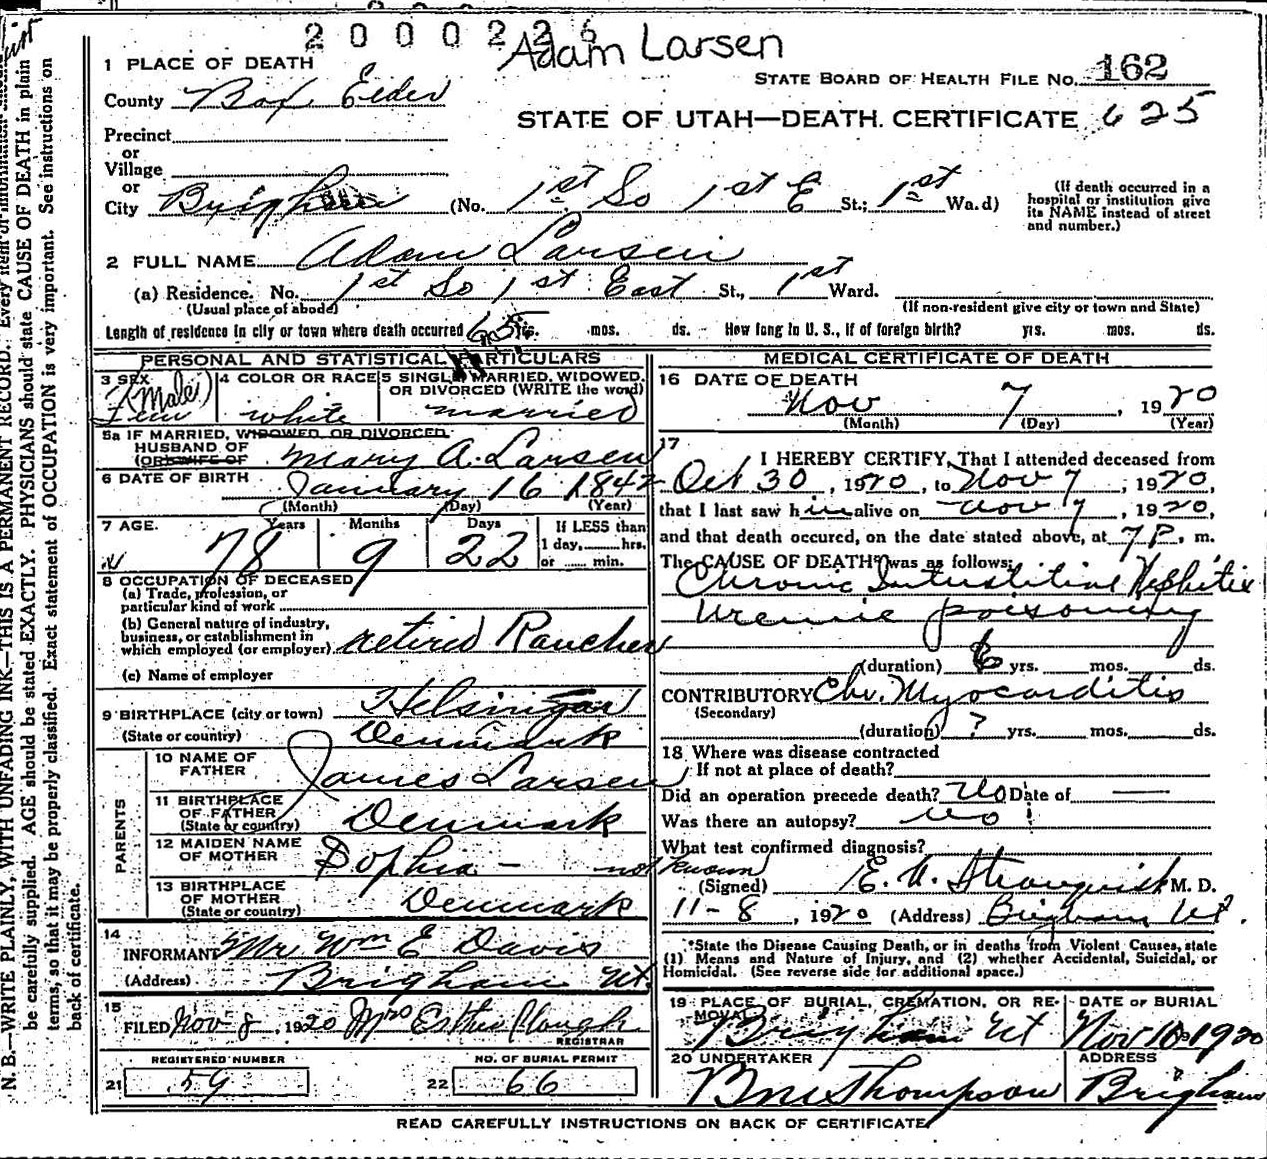 2000226
Adam Larsen
1 PLACE OF DEATH
STATE BOARD OF HEALTH FILE NO. 162
County Box Elder
STATE OF UTAH—DEATH. CERTIFICATE 625
Precinct
or
Village
or
City Brigham (No. 1st So 1st E St.; 1st Wa.d)
(If death occurred in a
hospital or institution give
its NAME instead of street
and number.)
2 FULL NAME Adam Larsen
(a) Residence. No. 1st So 1st East St., 1st Ward.
(Usual place of abode)
(If non-resident give city or town and State)
Length of residence in city or town where death occurred 65 yrs. mos. ds. - How long in U. S., if of foreign birth? yrs. mos. ds.
PERSONAL AND STATISTICAL PARTICULARS
3 SEX
(Male)
Fem
4 COLOR OR RACE
white
5 SINGLE, MARRIED, WIDOWED,
OR DIVORCED (WRITE the word)
married
5a IF MARRIED, WIDOWED OR DIVORCED
HUSBAND OF
(OR WIFE OF Mary A. Larsen
6 DATE OF BIRTH January 16 1842
(Month) (Day) (Year)
7 AGE. Years Months Days
78 9 22
If LESS than
1 day, hrs.
or min.
8 OCCUPATION OF DECEASED
(a) Trade, profession, or
particular kind of work
(b) General nature of industry,
business, or establishment in
which employed (or employer) retired Rancher
(c) Name of employer
9 BIRTHPLACE (city or town) Helsingar
(State or country) Denmark
PARENTS
10 NAME OF
FATHER James Larsen
11 BIRTHPLACE
OF FATHER
(State or country) Denmark
12 MAIDEN NAME
OF MOTHER Sophia - not known
13 BIRTHPLACE
OF MOTHER
(State or country) Denmark
14
INFORMANT Mr Wm E Davis
(Address) Brigham Ut.
15
FILED Nov 8, 1920 Mrs Esther
REGISTRAR
REGISTERED NUMBER
21 59
NO. OF BURIAL PERMIT
22 66
MEDICAL CERTIFICATE OF DEATH
16 DATE OF DEATH
Nov 7, 1920
(Month) (Day) (Year)
17
I HEREBY CERTIFY, That I attended deceased from
Oct 30, 1920, to Nov 7, 1920,
that I last saw him alive on Nov 7, 1920,
and that death occured, on the date stated above, at 7 P. m.
The CAUSE OF DEATH* was as follows:
Chronic Interstitial Nephitis
Uremic poisoning
(duration) 6 yrs. mos. ds.
CONTRIBUTORY Chr. Myocarditis
(Secondary)
(duration) ? yrs. mos. ds.
18 Where was disease contracted
If not at place of death?
Did an operation precede death? No Date of —
Was there an autopsy? No
What test confirmed diagnosis?
(Signed) E. M. D.
11-8, 1920 (Address) Brigham Ut.
*State the Disease Causing Death, or in deaths from Violent Causes, state
(1) Means and Nature of Injury, and (2) whether Accidental, Suicidal, or
Homicidal. (See reverse side for additional space.)
19 PLACE OF BURIAL, CREMATION, OR RE-
MOVAL
Brigham Ut
DATE OF BURIAL
Nov 10 1920
20 UNDERTAKER
Thompson
ADDRESS
Brigham
READ CAREFULLY INSTRUCTIONS ON BACK OF CERTIFICATE
N. B.—WRITE PLAINLY, WITH UNFADING INK—THIS IS A PERMANENT RECORD. Every item of information should
be carefully supplied. AGE should be stated EXACTLY. PHYSICIANS should state CAUSE OF DEATH in plain
terms, so that it may be properly classified. Exact statement of OCCUPATION is very important. See instructions on
back of certificate.